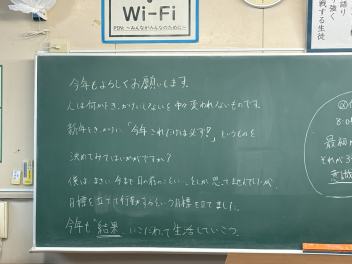 Wi-Fi
PTA: 〜みんながみんなのために〜
語り
強く
戦する生徒
今年もよろしくお願いします。
人は何かきっかけがないと中々変われないものです。
新年をきっかけに「今年これだけは必ず!」というものを
決めてみてはいかがですか?
僕は、まさに今まで目の前のこと
目標を立てて行動するという目標を立てました。
今年も"結果"にこだわって生活していこう。
8:0
最初
それが3
意識